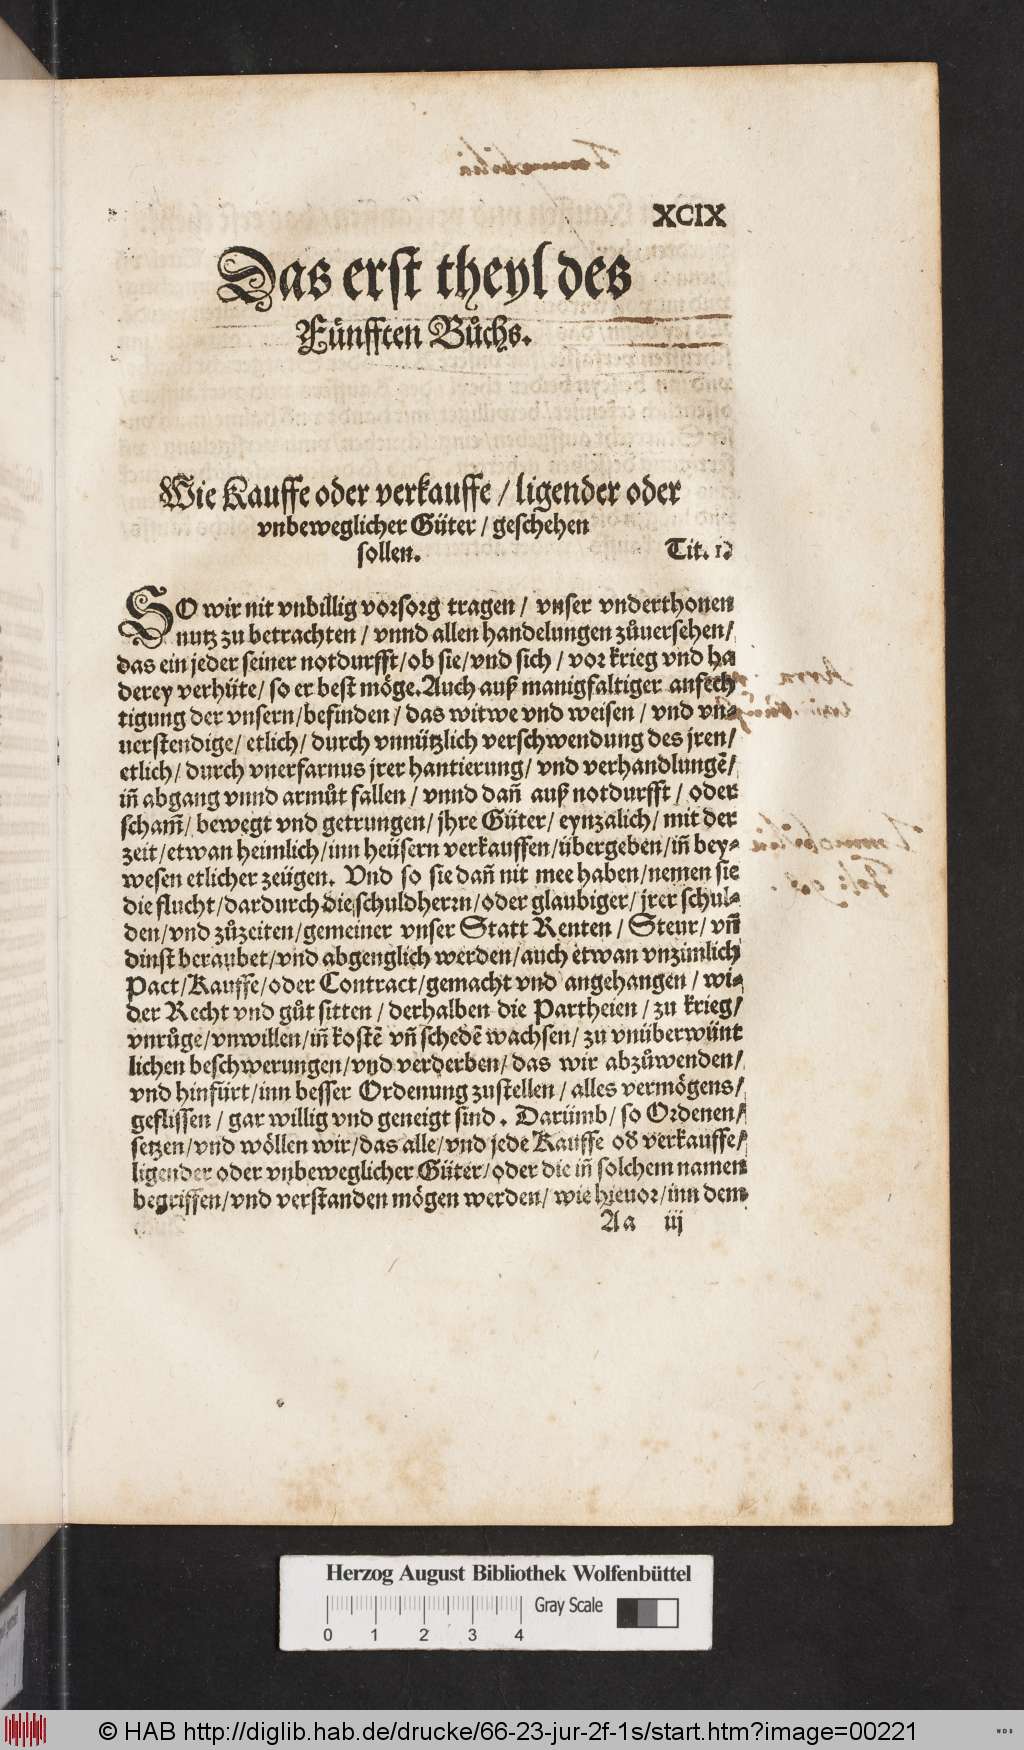 XCIX
Das erst theyl des
Fünfften Bůchs.
Wie Kauffe oder verkauffe / ligender oder
vnbeweglicher Güter / geschehen
sollen.
Tit. 1.
SO wir nit vnbillig vorsorg tragen / vnser vnderthonen
nutz zu betrachten / vnnd allen handelungen zůuersehen /
das ein jeder seiner notdurfft / ob sie / vnd sich / vor krieg vnd ha
derey verhüte / so er best möge. Auch auß manigfaltiger anfech
tigung der vnsern / befinden / das witwe vnd weisen / vnd vn-
uerstendige / etlich / durch vnnützlich verschwendung des jren /
etlich / durch vnerfarnus jrer hantierung / vnd verhandlungẽ /
iñ abgang vnnd armůt fallen / vnnd dañ auß notdurfft / oder
scham̃ / bewegt vnd getrungen / jhre Güter / eynzalich / mit der
zeit / etwan heimlich / inn heüsern verkauffen / übergeben / iñ bey-
wesen etlicher zeügen. Vnd so sie dañ nit mee haben / nemen sie
die flucht / dardurch die schuldherrn / oder glaubiger / jrer schul-
den / vnd zůzeiten / gemeiner vnser Statt Renten / Steur / vñ
dinst beraubet / vnd abgenglich werden / auch etwan vnzimlich
Pact / Kauffe / oder Contract / gemacht vnd angehangen / wi-
der Recht vnd gůt sitten / derhalben die Partheien / zu krieg /
vnrůge / vnwillen / iñ kostẽ vñ schedẽ wachsen / zu vnüberwünt
lichen beschwerungen / vnd verderben / das wir abzůwenden /
vnd hinfürt / inn besser Ordenung zustellen / alles vermögens /
geflissen / gar willig vnd geneigt sind. Darümb / so Ordenen /
setzen / vnd wöllen wir / das alle / vnd jede Kauffe od verkauffe /
ligender oder vnbeweglicher Güter / oder die iñ solchem namen
begriffen / vnd verstanden mögen werden / wie hieuor / inn dem
Aa iij
Herzog August Bibliothek Wolfenbüttel
Gray Scale
0 1 2 3 4
© HAB http://diglib.hab.de/drucke/66-23-jur-2f-1s/start.htm?image=00221